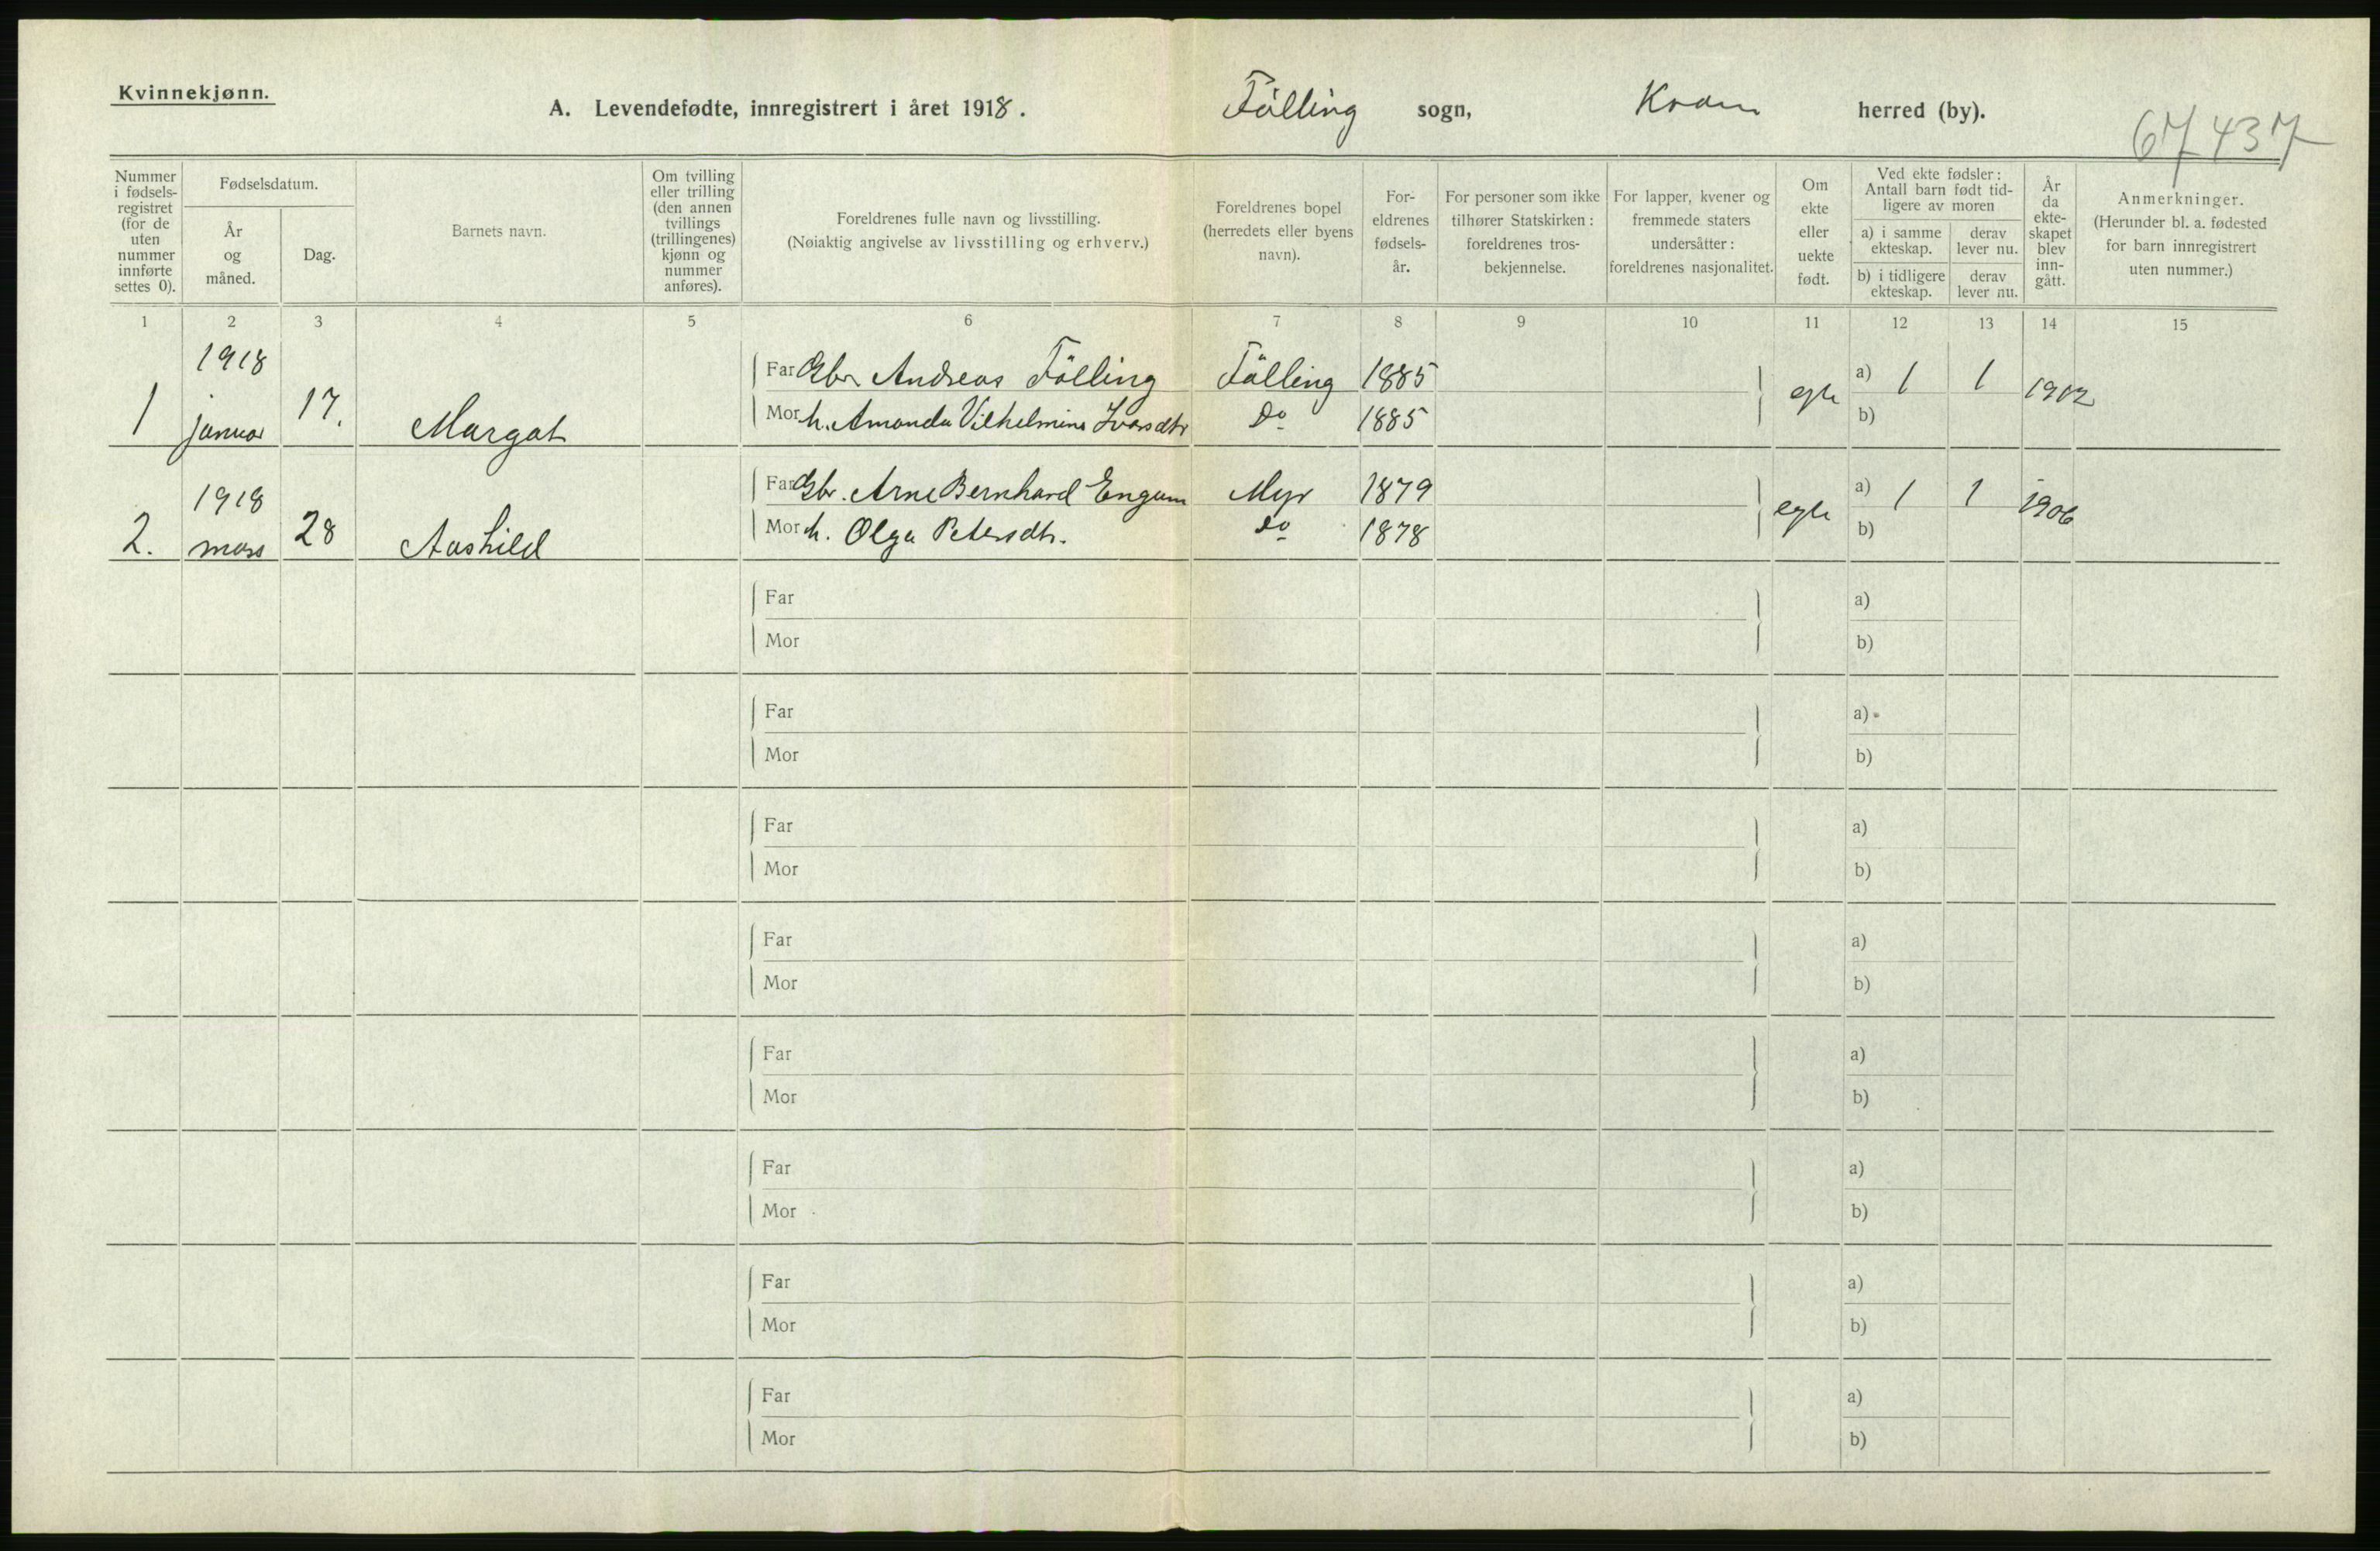 Kvinnekjønn.
A. Levendefødte, innregistrert i året 1918. Følling sogn, Kvam herred (by).
67437
Nummer i fødsels-registret (for de uten nummer innførte settes 0).
Fødselsdatum.
År og måned.
Dag.
Barnets navn.
Om tvilling eller trilling (den annen tvillings (trillingenes) kjønn og nummer anføres).
Foreldrenes fulle navn og livsstilling.
(Nøiaktig angivelse av livsstilling og erhverv.)
Foreldrenes bopel (herredets eller byens navn).
For-eldrenes fødsels-år.
For personer som ikke tilhører Statskirken: foreldrenes tros-bekjennelse.
For lapper, kvener og fremmede staters undersåtter: foreldrenes nasjonalitet.
Om ekte eller uekte født.
Ved ekte fødsler: Antall barn født tid-ligere av moren
a) i samme ekteskap.
derav lever nu.
b) i tidligere ekteskap.
derav lever nu.
År da ekte-skapet blev inn-gått.
Anmerkninger.
(Herunder bl. a. fødested for barn innregistrert uten nummer.)
1 2 3 4 5 6 7 8 9 10 11 12 13 14 15
1 1918 januar 17. Margot
Far Gbr. Andreas Følling Følling 1885 egte a) 1 1 1912
Mor h. Amanda Vilhelmine Ivarsdtr Do 1885 b)
2. 1918 mars 28 Aashild
Far Gbr. Arne Bernhard Engum Myr 1879 egte a) 1 1 1906
Mor h. Olga Petersdtr. do 1878 b)
Far a)
Mor b)
Far a)
Mor b)
Far a)
Mor b)
Far a)
Mor b)
Far a)
Mor b)
Far a)
Mor b)
Far a)
Mor b)
Far a)
Mor b)